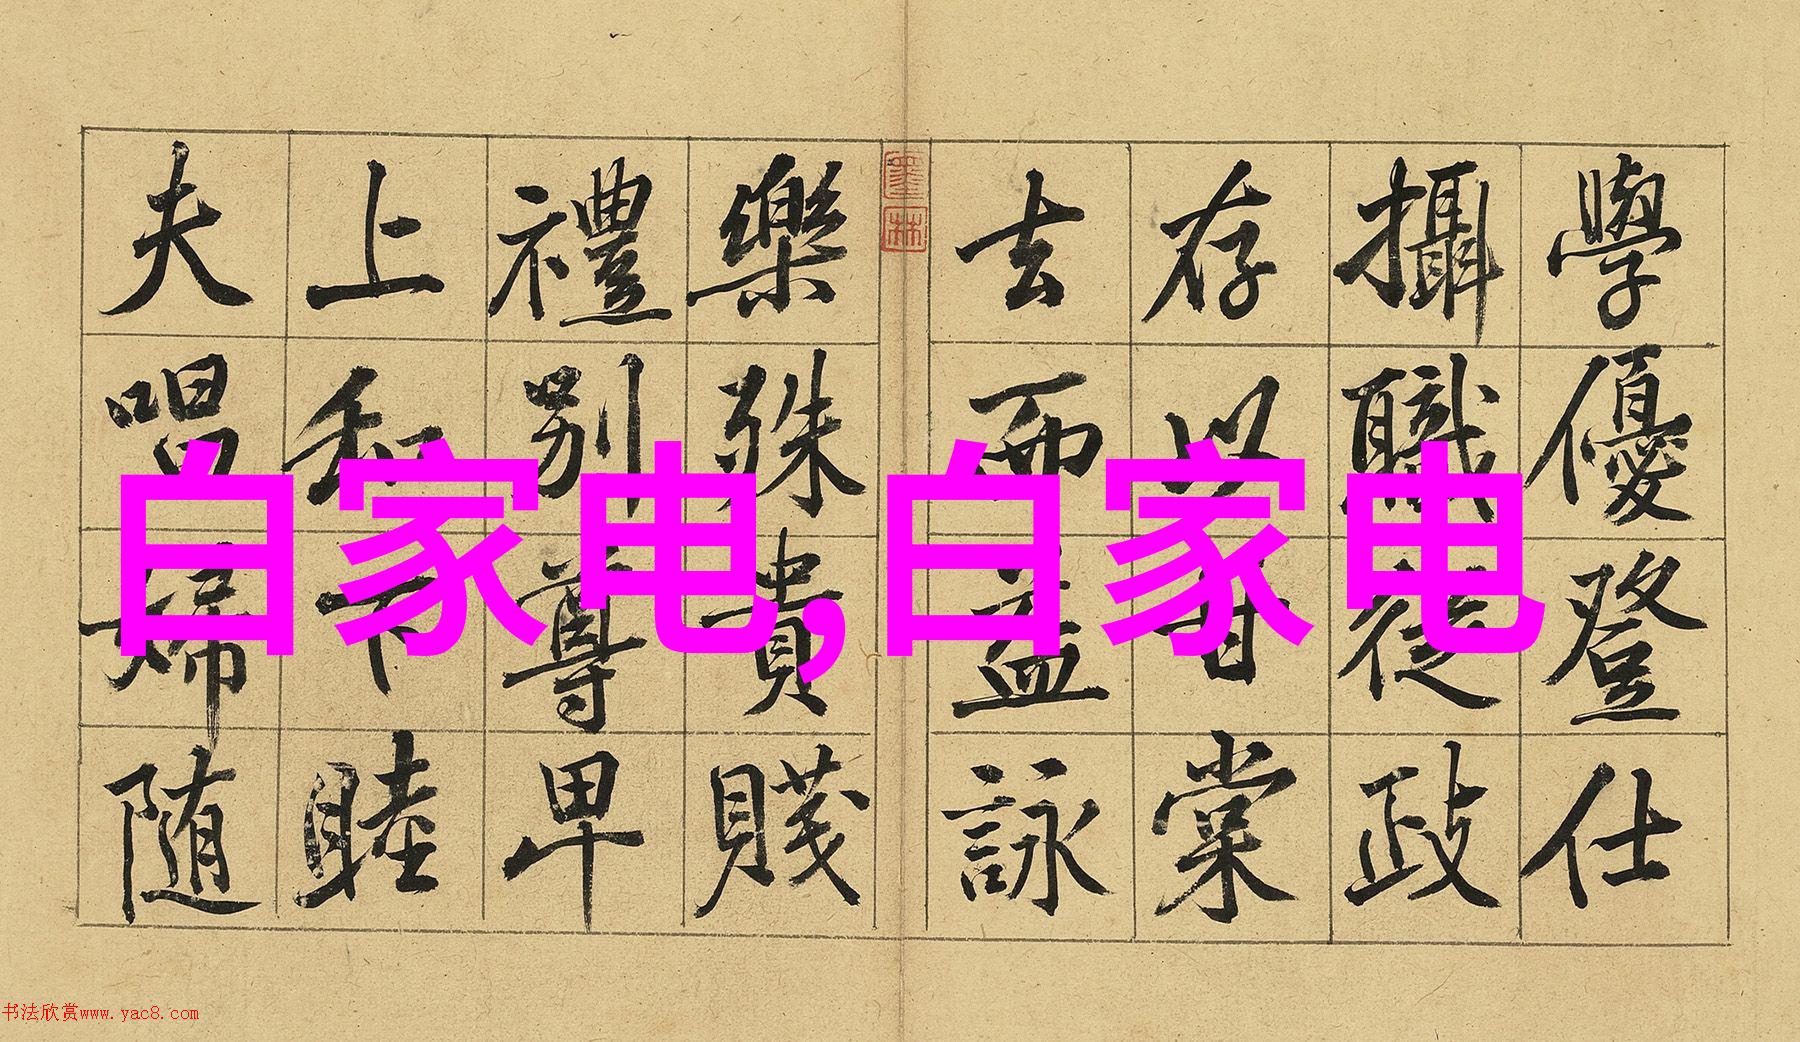 學優登仕
攝職從政
存以甘棠
去而益詠
墨林
樂殊貴賤
禮別尊卑
上和下睦
夫唱婦随
白家电,白家电
书法欣赏www.yac8.com